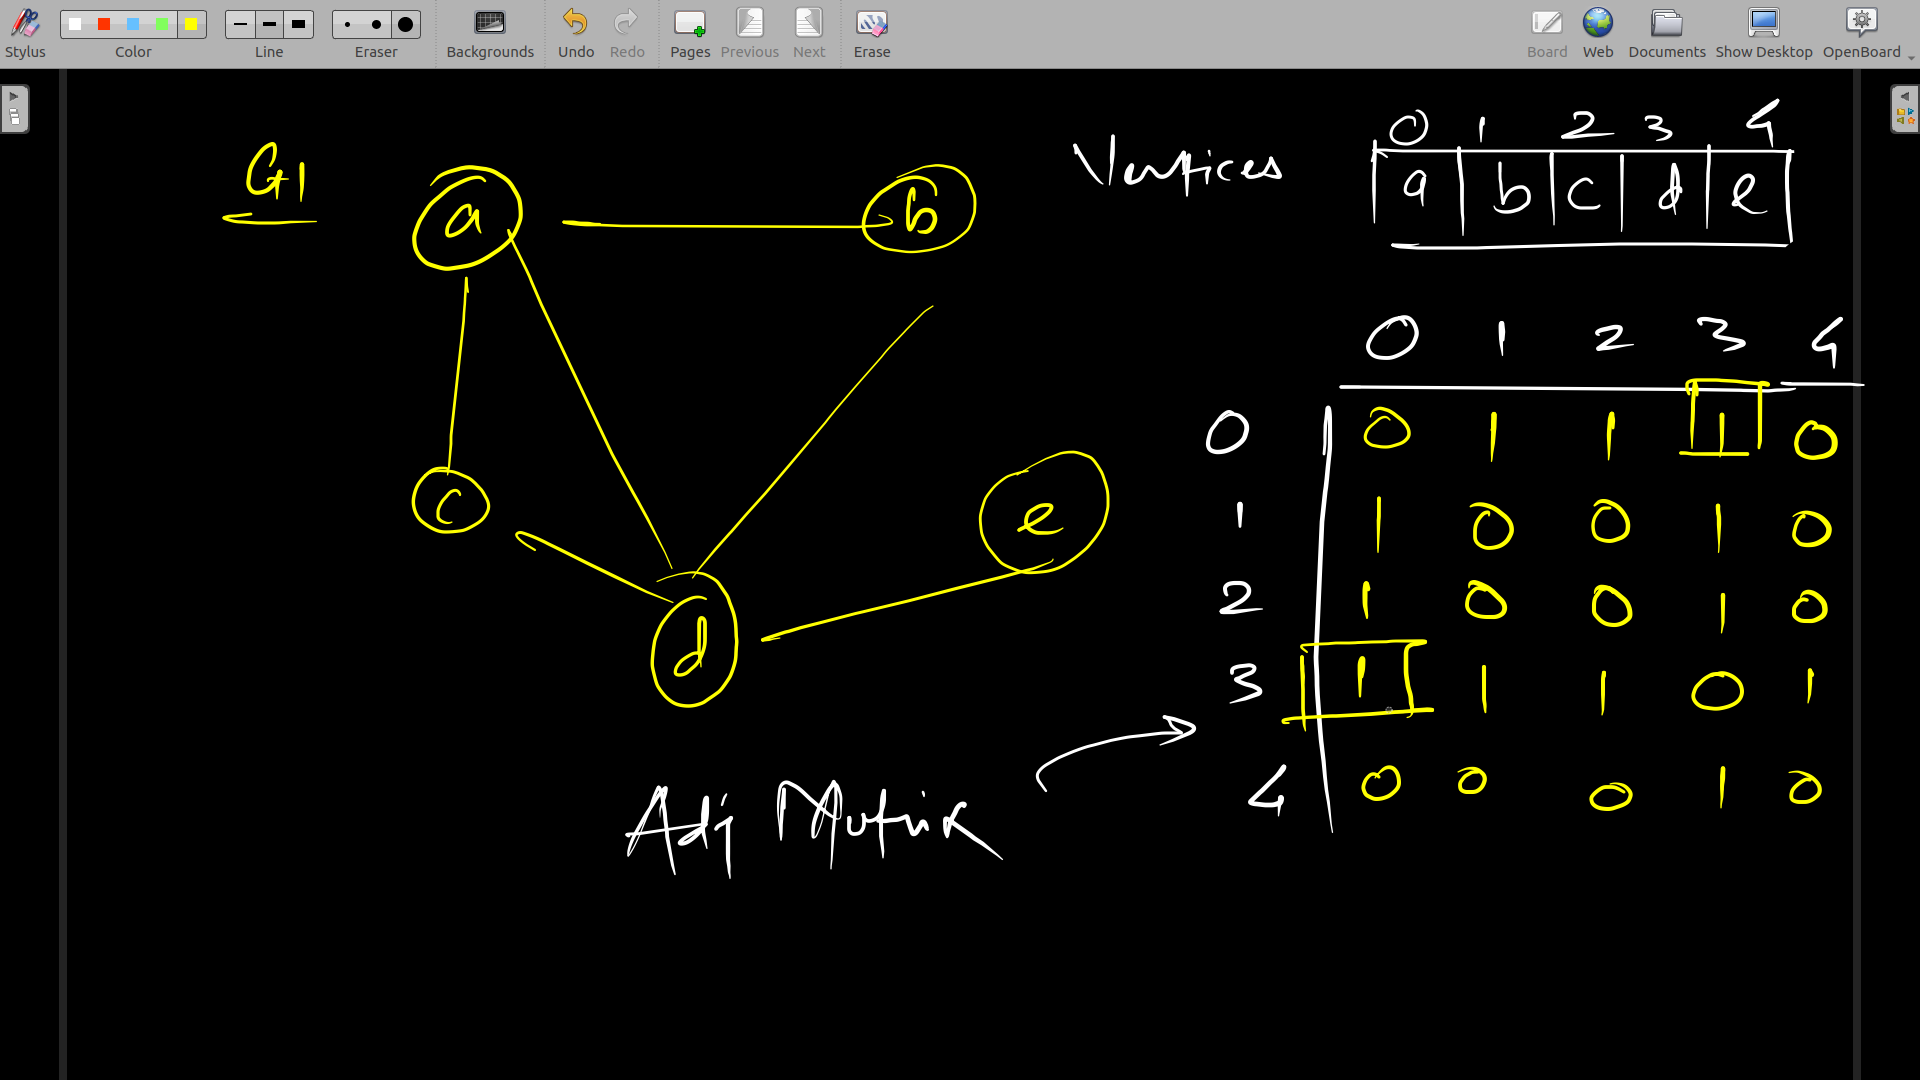 Stylus Color Line Eraser Backgrounds Undo Redo Pages Previous Next Erase Board Web Documents Show Desktop OpenBoard
G1
a
b
c
d
e
Vertices
0 1 2 3 4
a b c d e
0 1 2 3 4
0 0 1 1 1 0
1 1 0 0 1 0
2 1 0 0 1 0
3 1 1 1 0 1
4 0 0 0 1 0
Adj Matrix